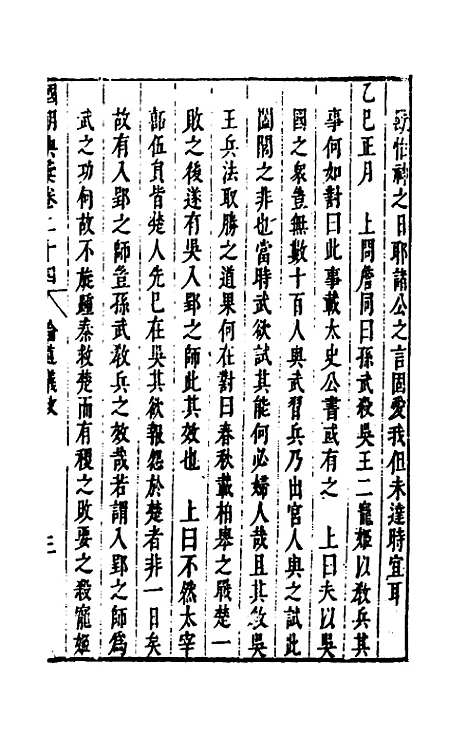 勤怡神之日耶諸公之言固愛我但未達時宜耳
乙巳正月　上問詹同曰孫武殺吳王二寵姬以敎兵其
事何如對曰此事載太史公書或有之　上曰夫以吳
國之衆豈無數十百人與武習兵乃出宮人與之試此
闔閭之非也當時武欲試其能何必婦人哉且其敎吳
王兵法取勝之道果何在對曰春秋載柏舉之戰楚一
敗之後遂有吳入郢之師此其效也　上曰不然太宰
嚭伍員皆楚人先已在吳其欲報怨於楚者非一日矣
故有入郢之師豈孫武敎兵之效哉若謂入郢之師爲
武之功何故不旋踵秦救楚而有稷之敗要之殺寵姬
國朝典彙卷二十四　論道議政　三